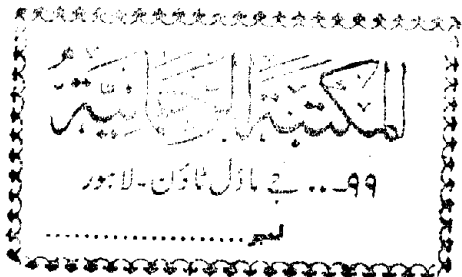 المكتبة الرحمانية
۹۹-.. جے ماڈل ٹاؤن - لاہور
نمبر ........................